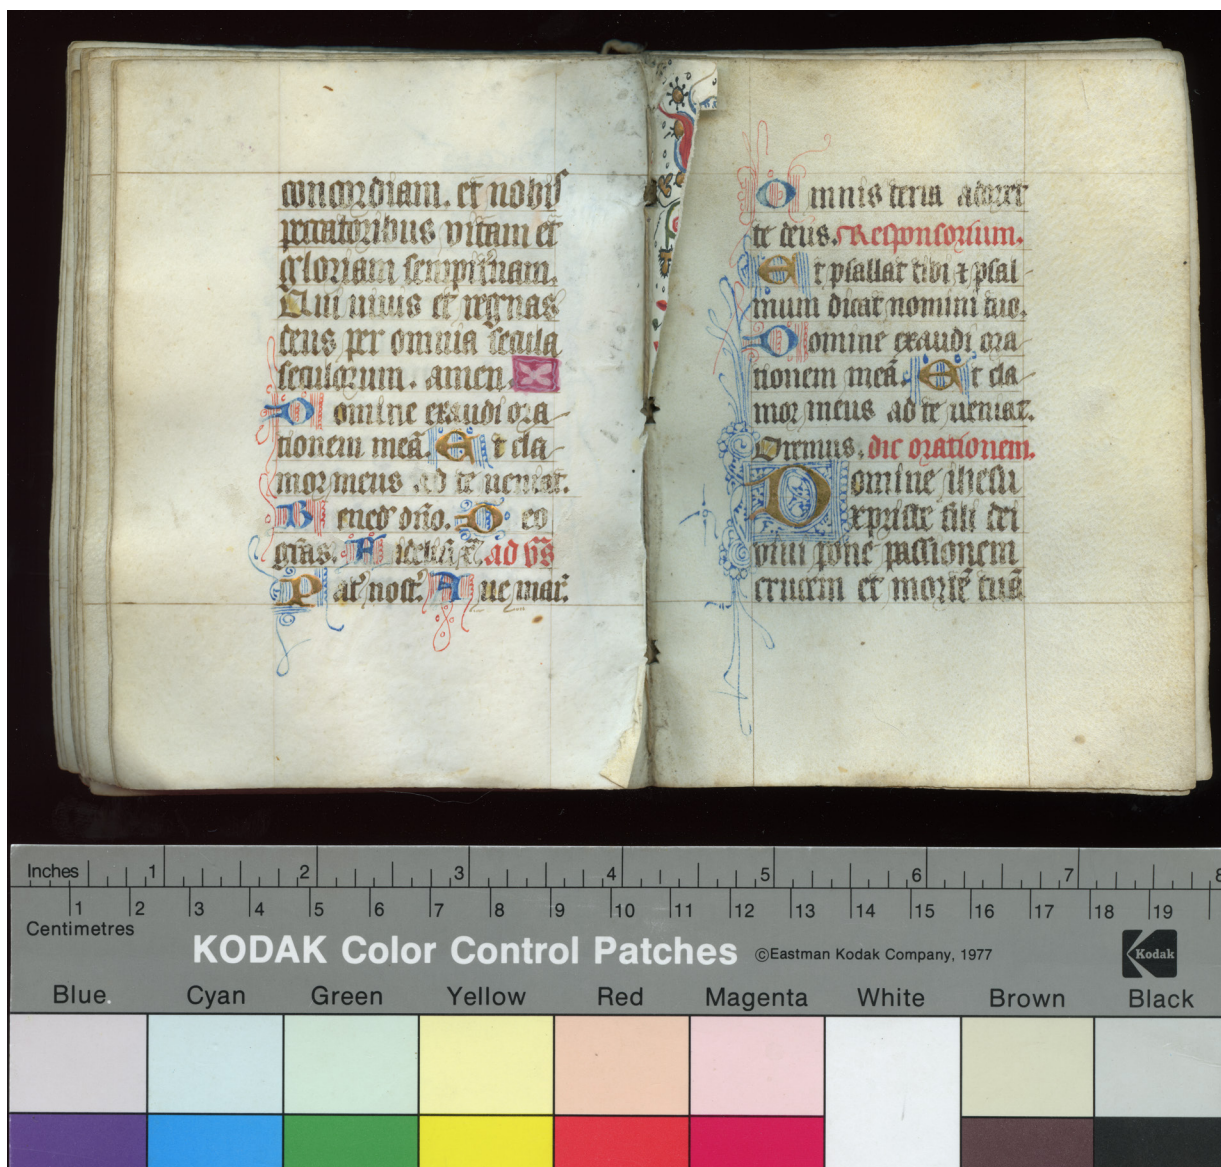 concordiam. et nobis
peccatoribus vitam et
gloriam sempiternam.
Qui vivis et regnas
deus per omnia secula
seculorum. amen.
Domine exaudi ora
tionem meā. Et cla
mor meus ad te veniat.
Bened' dño. Deo
grās. Fideliū ad vs̄
Pat' nost'. Ave mar'.
Omnis terra adoret
te deus. Responsorium.
Et psallat tibi ⁊ psal
mum dicat nomini tuo.
Domine exaudi ora
tionem meā. Et cla
mor meus ad te veniat.
Oremus. dic orationem.
Domine ihesu
xpriste fili dei
vivi pone passionem
crucem et mortē tuā
Inches 1 2 3 4 5 6 7 8
1 2 3 4 5 6 7 8 9 10 11 12 13 14 15 16 17 18 19
Centimetres
KODAK Color Control Patches ©Eastman Kodak Company, 1977 Kodak
Blue Cyan Green Yellow Red Magenta White Brown Black